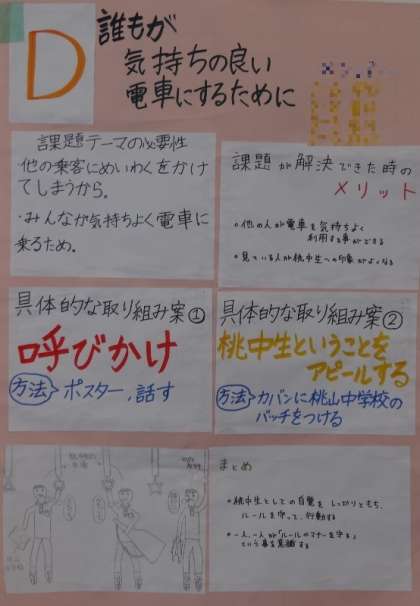 D
誰もが
気持ちの良い
電車にするために
課題テーマの必要性
・他の乗客にめいわくをかけ
てしまうから。
・みんなが気持ちよく電車に
乗るため。
課題が解決できた時の
メリット
・他の人が電車を気持ちよく
利用する事ができる
・見ている人が桃中生への印象がよくなる
具体的な取り組み案①
呼びかけ
方法 ポスター、話す
具体的な取り組み案②
桃中生ということを
アピールする
方法 カバンに桃山中学校の
バッチをつける
まとめ
・桃中生としての自覚をしっかりともち、
ルールを守って、行動する
・一人、一人が「ルールのマナーを守る」
という事を意識する